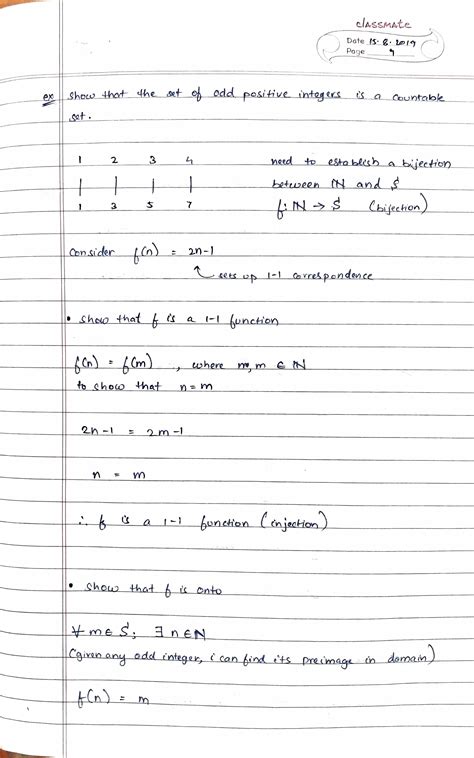 classmate
Date 15.8.2019
Page 9
ex show that the set of odd positive integers is a countable
set.
1 2 3 4 need to establish a bijection
| | | | between ℕ and S
1 3 5 7 f: ℕ → S (bijection)
Consider f(n) = 2n-1
sets up 1-1 correspondence
• show that f is a 1-1 function
f(n) = f(m) , where n, m ∈ ℕ
to show that n=m
2n-1 = 2m-1
n = m
∴ f is a 1-1 function (injection)
• show that f is onto
∀ m∈S; ∃ n∈ℕ
(given any odd integer, i can find its preimage in domain)
f(n) = m